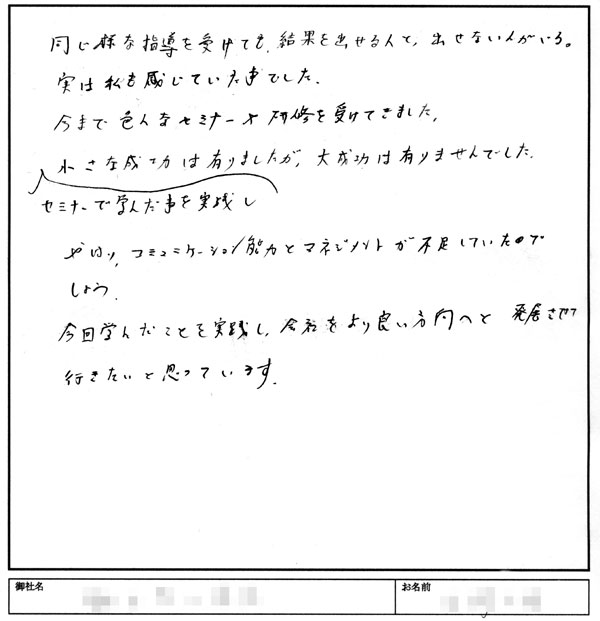 同じ様な指導を受けても、結果を出せる人と、出せない人がいる。
実は私も感じていた事でした。
今まで色んなセミナーや研修を受けてきました。
小さな成功は有りましたが、大成功は有りませんでした。
セミナーで学んだ事を実践し
やはり、コミュニケーション能力とマネジメントが不足していたので
しょう。
今回学んだことを実践し、会社をより良い方向へと発展させて
行きたいと思っています。
御社名
お名前